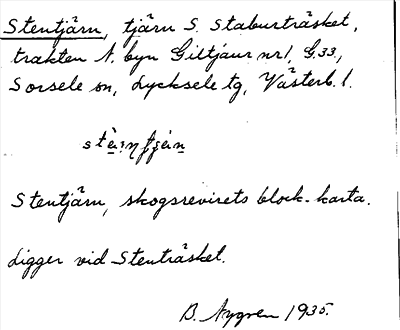 Stentjärn, tjärn S. Staburträsket,
trakten N. byn Giltjaur nr 1, G. 33,
Sorsele sn, Lycksele tg, Västerb. l.
Stentjärn, skogsrevirets block-karta.
Ligger vid Stenträsket.
B. Nygren 1935.